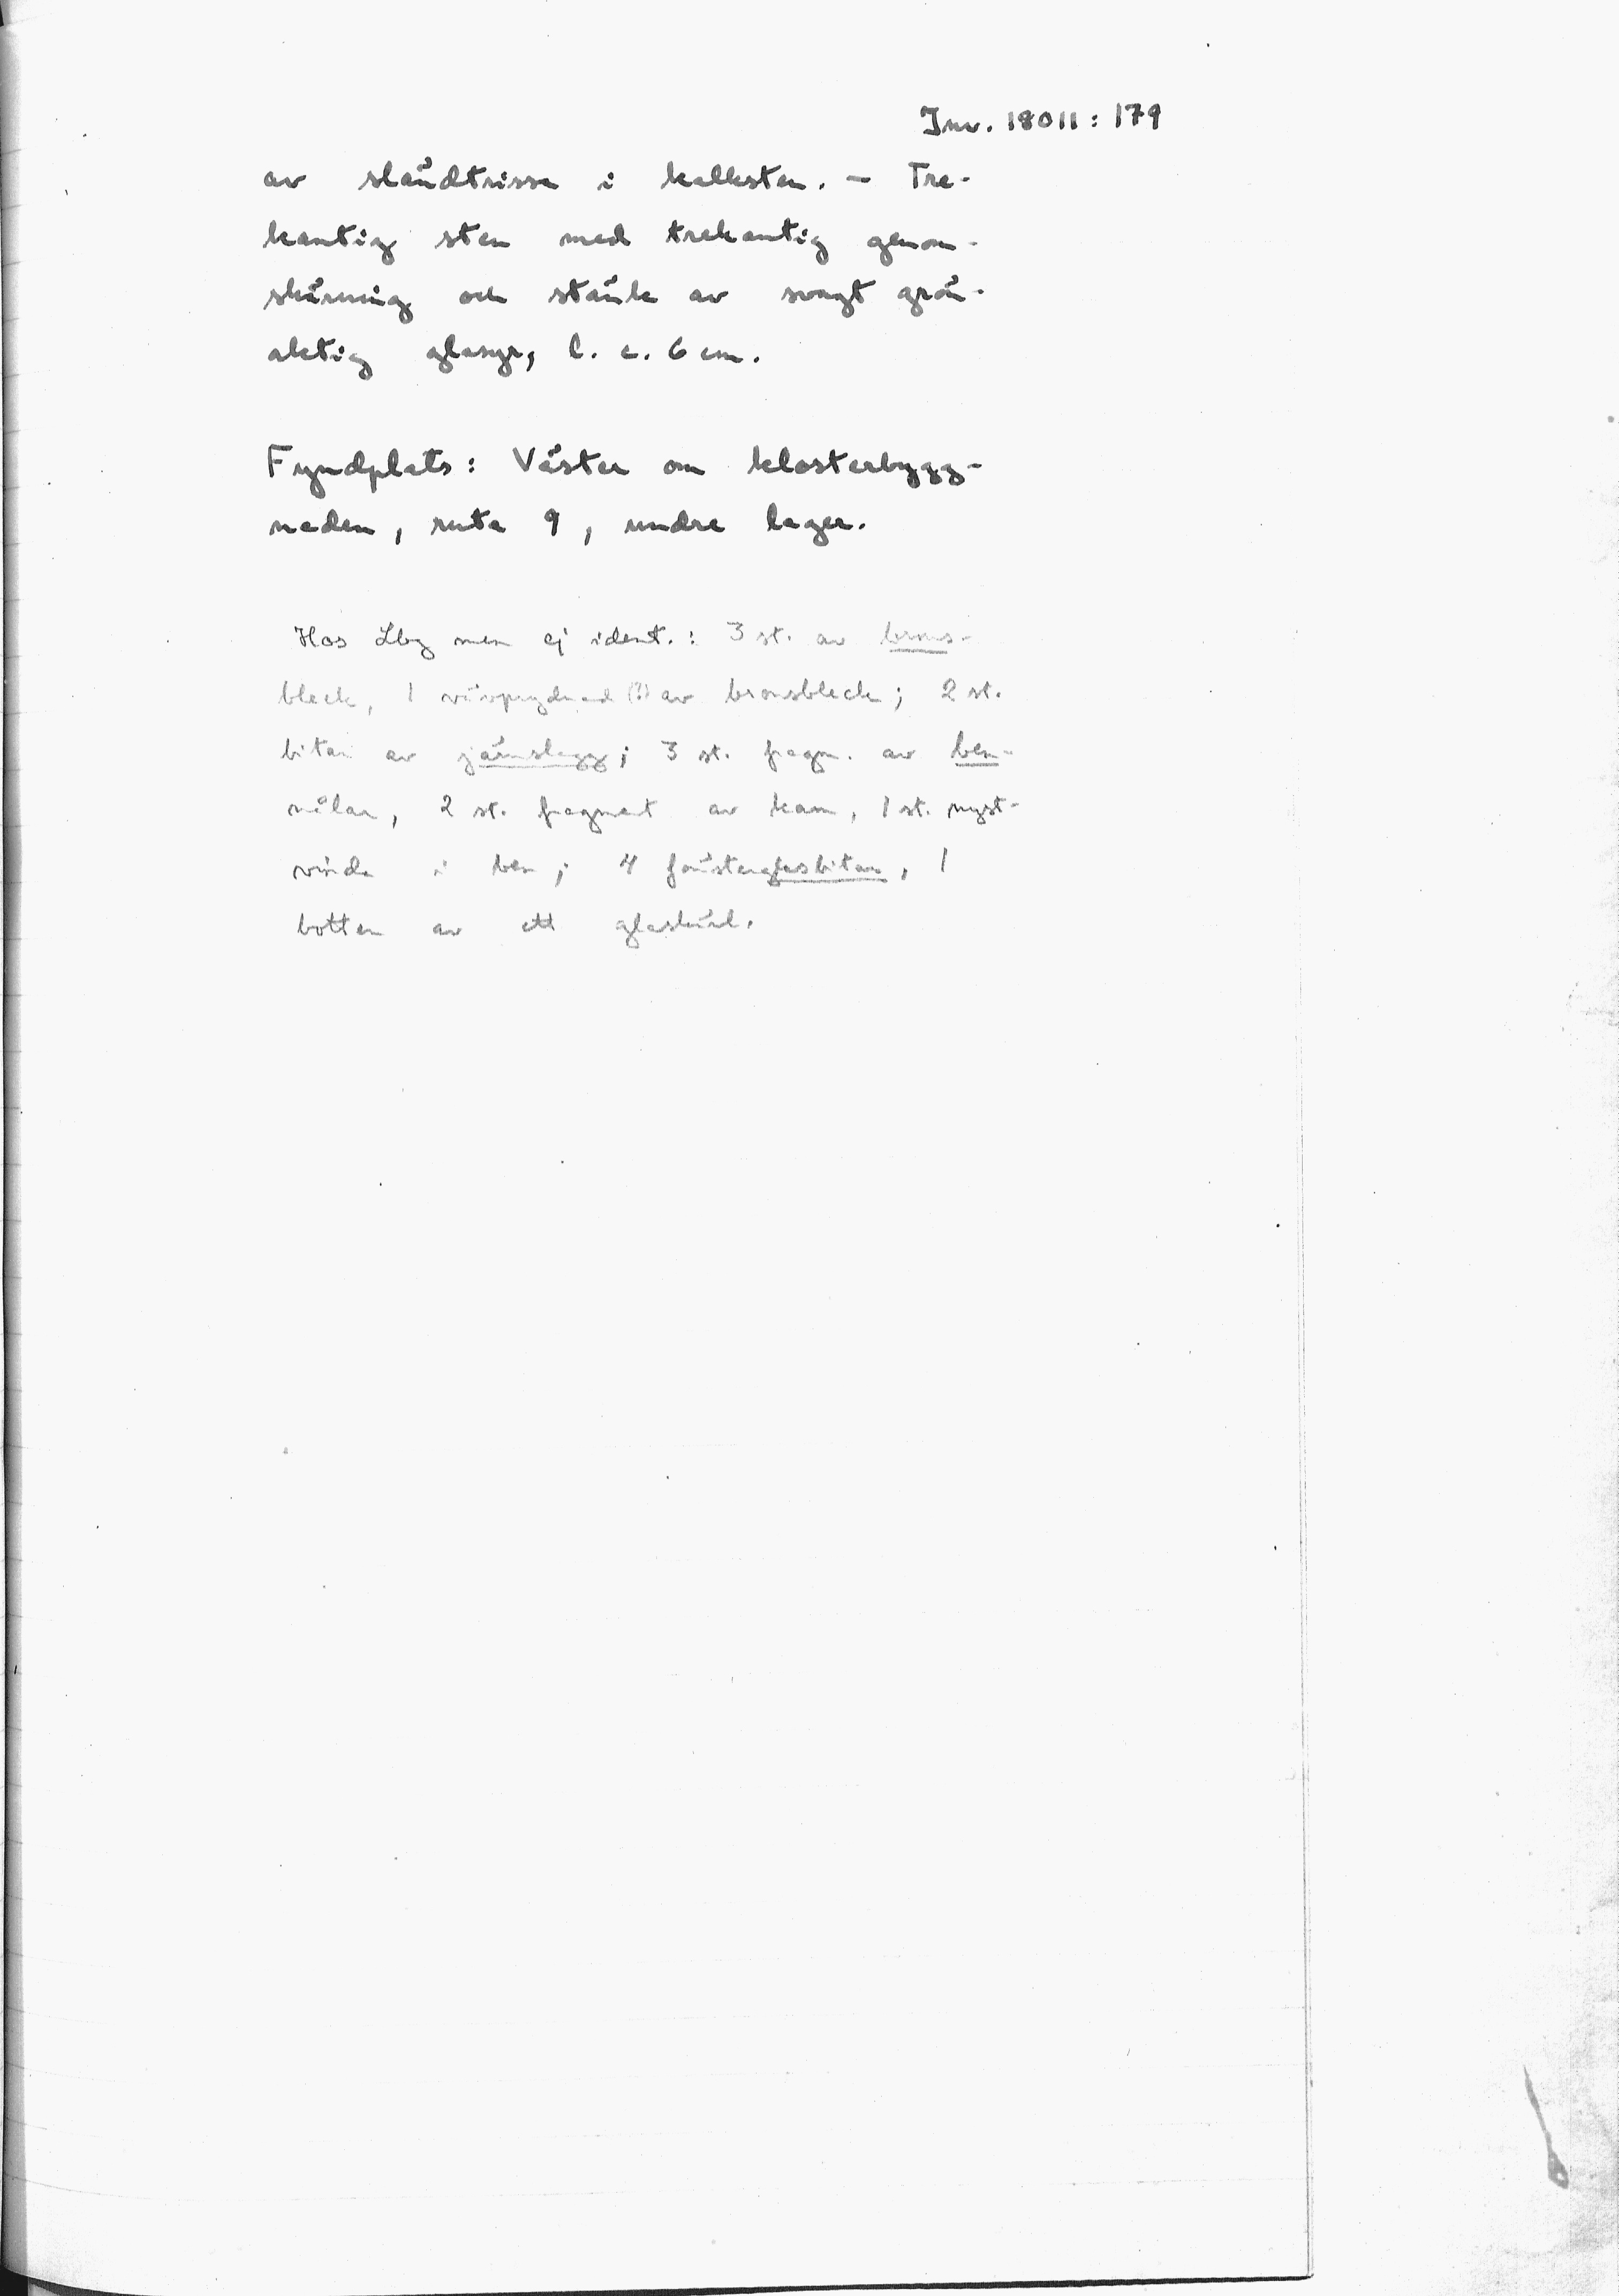 Inv. 18011:179
av sländtrissa i kalksten. — Tre-
kantig sten med trekantig genom-
skärning och stänk av svagt grön-
aktig glasyr, l. c. 6 cm.
Fyndplats: Väster om klosterbygg-
naden, ruta 9, undre lager.
Hos Lbg men ej ident.: 3 st. av brons-
bleck, 1 (?) av bronsbleck; 2 st.
bitar av järnslagg; 3 st. fragm. av ben-
nålar, 2 st. fragment av kam, 1 st. nyst-
vinda i ben; 4 fönsterglasbitar, 1
botten av ett glaskärl.